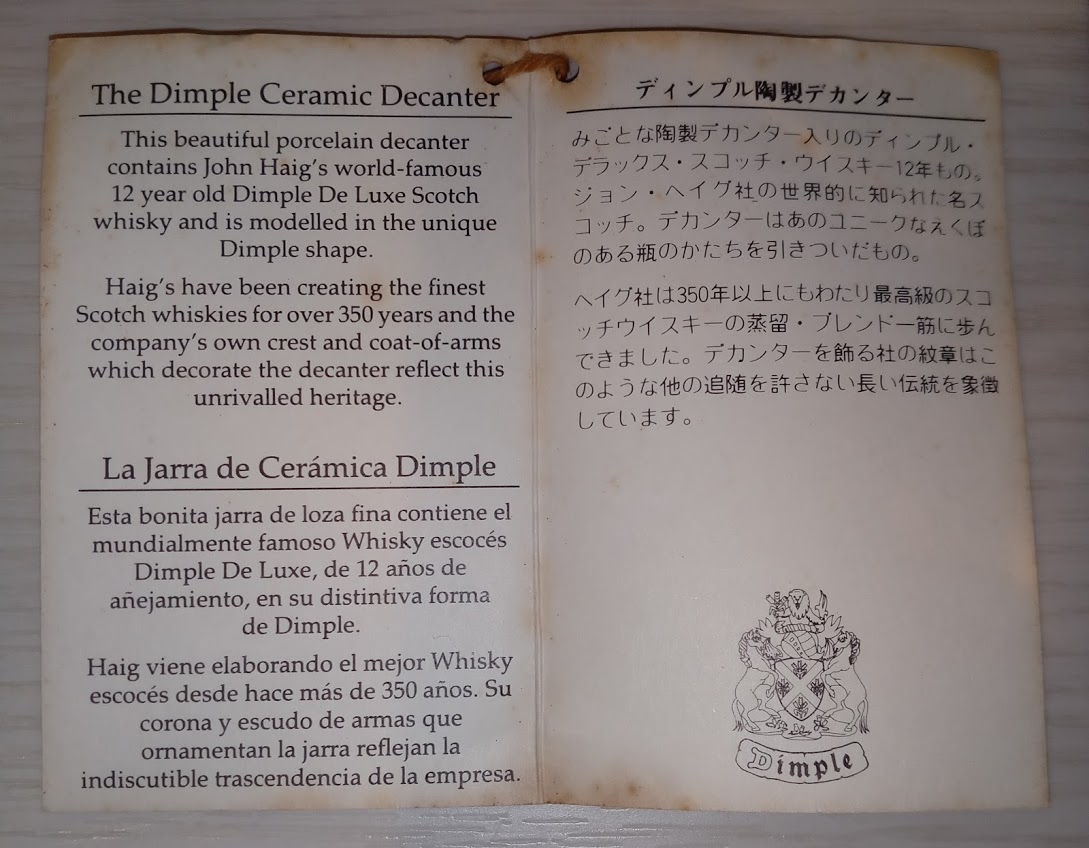 The Dimple Ceramic Decanter
This beautiful porcelain decanter
contains John Haig's world-famous
12 year old Dimple De Luxe Scotch
whisky and is modelled in the unique
Dimple shape.
Haig's have been creating the finest
Scotch whiskies for over 350 years and the
company's own crest and coat-of-arms
which decorate the decanter reflect this
unrivalled heritage.
La Jarra de Cerámica Dimple
Esta bonita jarra de loza fina contiene el
mundialmente famoso Whisky escocés
Dimple De Luxe, de 12 años de
añejamiento, en su distintiva forma
de Dimple.
Haig viene elaborando el mejor Whisky
escocés desde hace más de 350 años. Su
corona y escudo de armas que
ornamentan la jarra reflejan la
indiscutible trascendencia de la empresa.
ディンプル陶製デカンター
みごとな陶製デカンター入りのディンプル・
デラックス・スコッチ・ウイスキー12年もの。
ジョン・ヘイグ社の世界的に知られた名ス
コッチ。デカンターはあのユニークなえくぼ
のある瓶のかたちを引きついだもの。
ヘイグ社は350年以上にもわたり最高級のスコ
ッチウイスキーの蒸留・ブレンド一筋に歩ん
できました。デカンターを飾る社の紋章はこ
のような他の追随を許さない長い伝統を象徴
しています。
Dimple